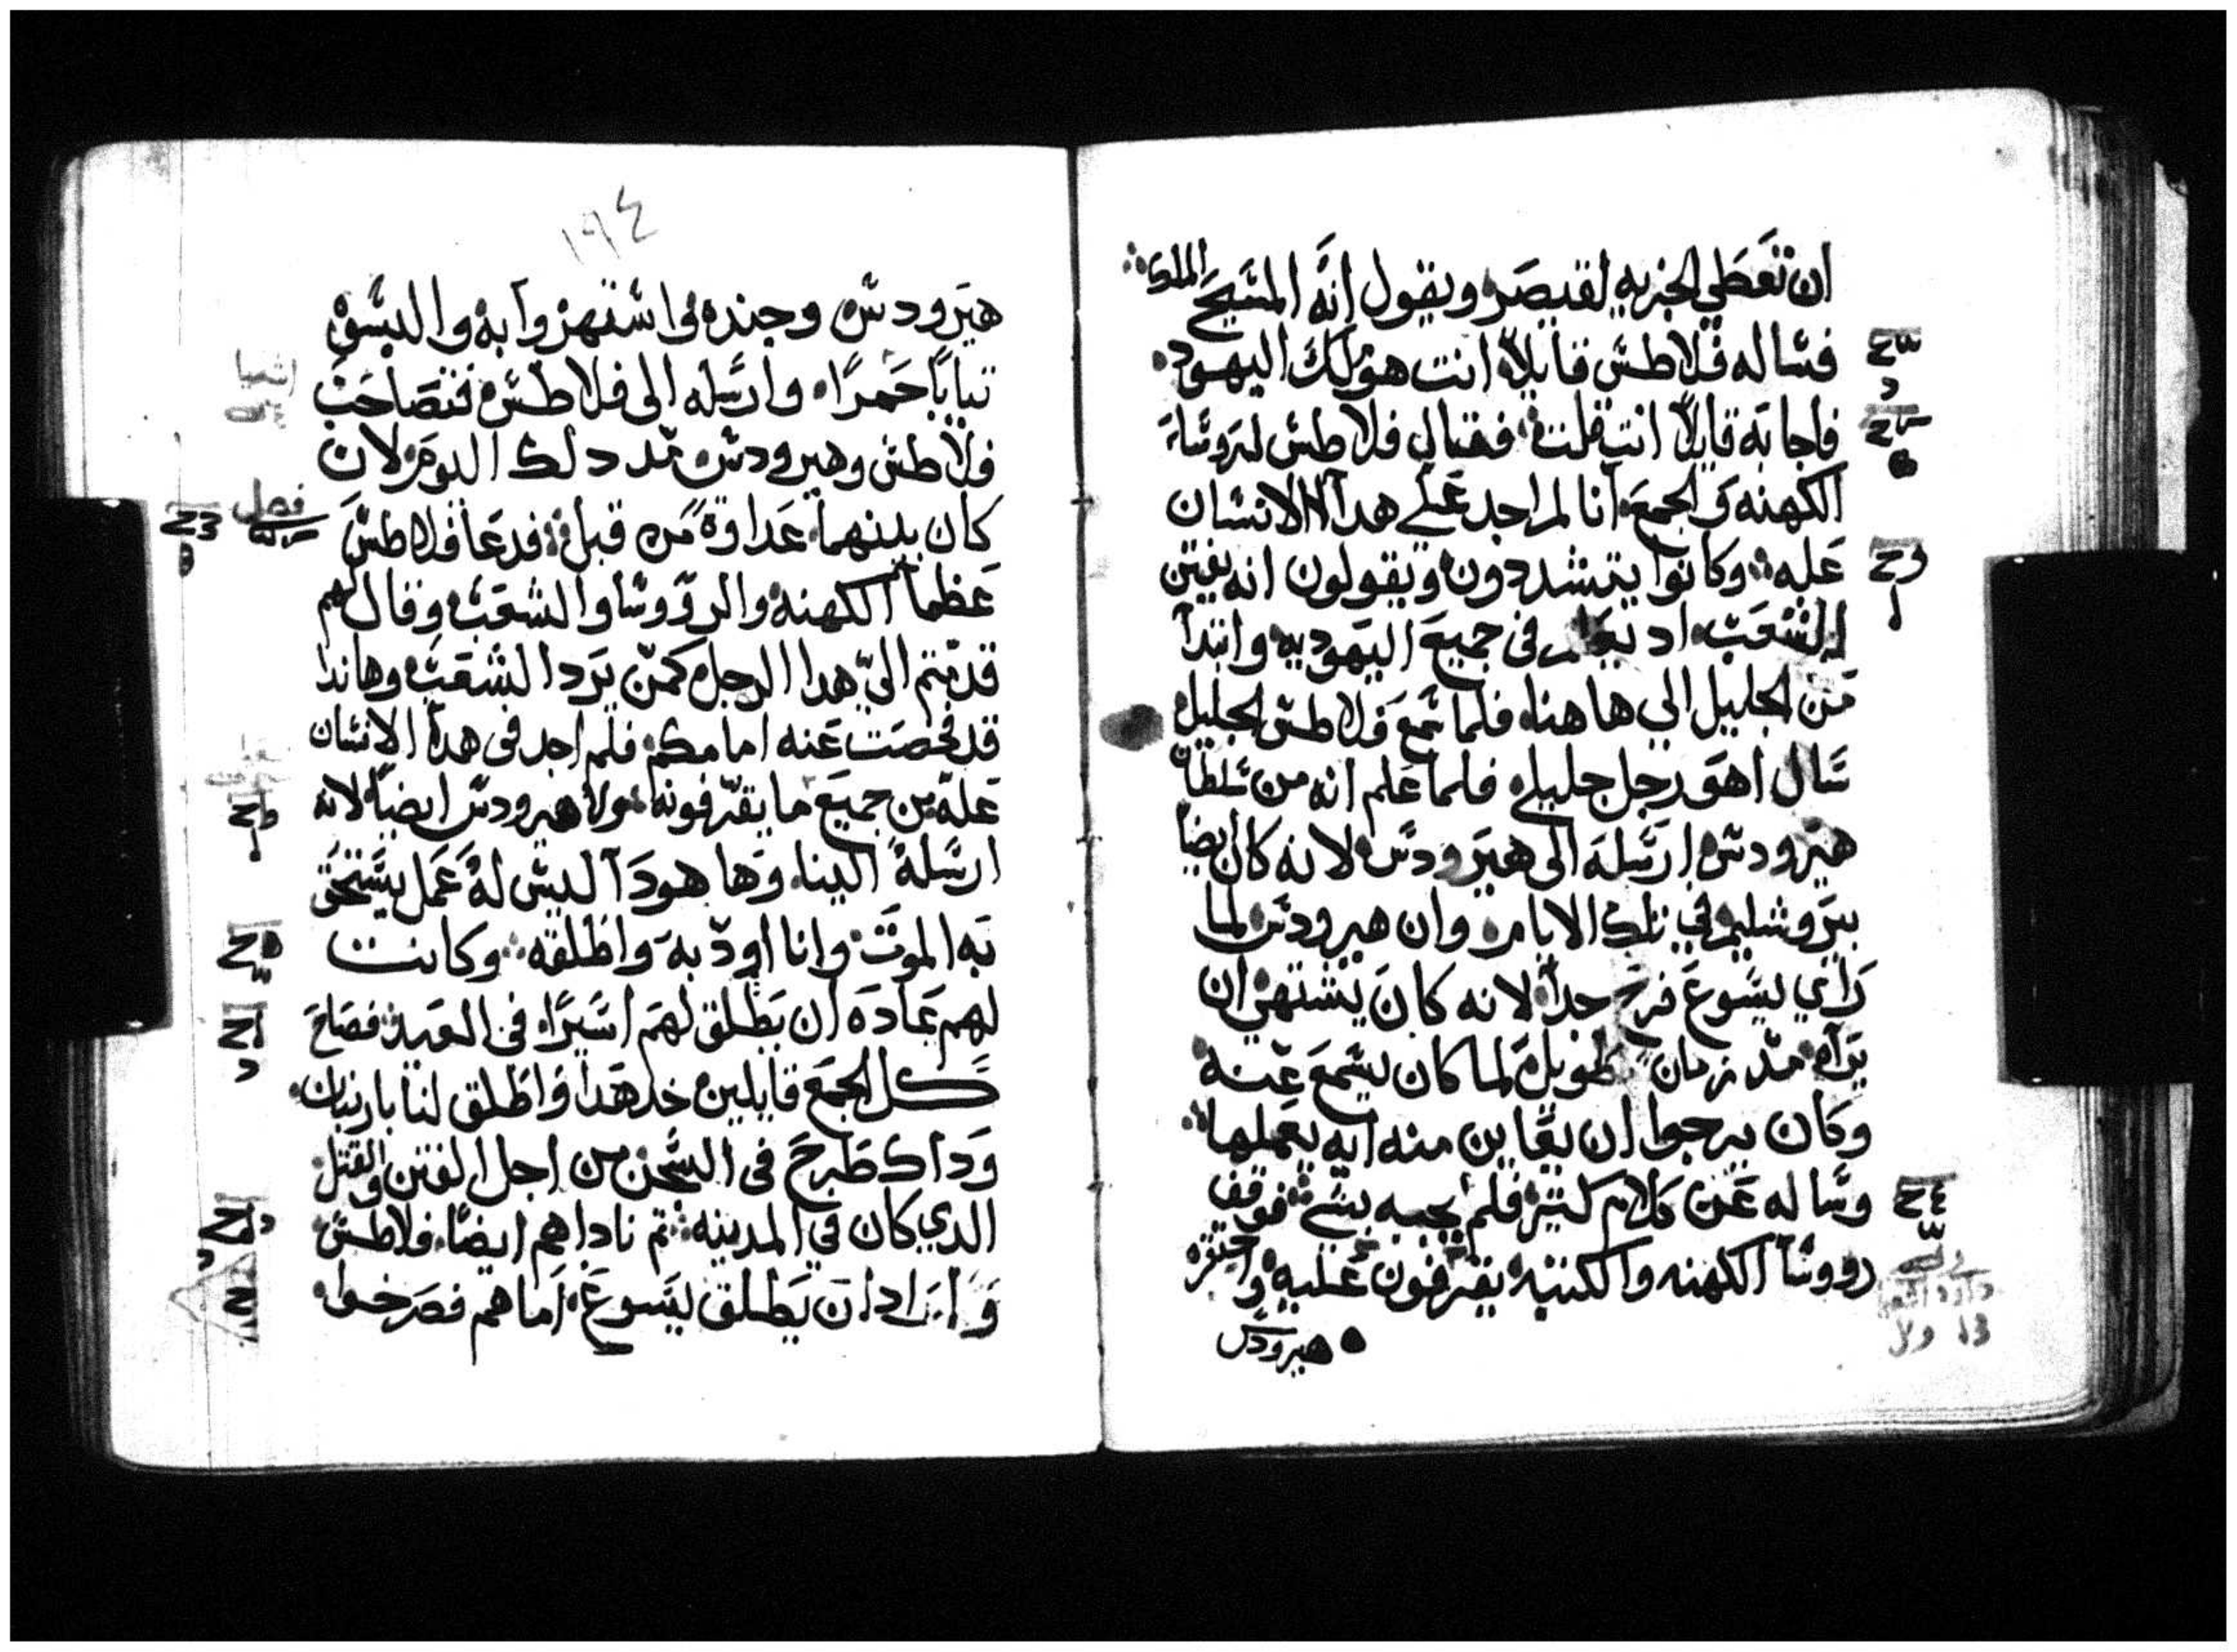 ان تعطي الجزيه لقيصر ويقول انه المسيح الملك
فساله فلاطس قايلا انت هو ملك اليهود
فاجابه قايلا انت قلت فقال فلاطس لروساء
الكهنه والجمع انا لم اجد على هدا الانسان
عله وكانوا يتشددون ويقولون انه يفتن
الشعب اد يعلم في جميع اليهوديه وابتدا
من الجليل الي هاهنا فلما سمع فلاطس الجليل
سال اهو رجل جليلي فلما علم انه من سلطان
هيرودس ارسله الى هيرودس لانه كان ايضا
بيروشليم في تلك الايام وان هيرودس لما
راي يسوع فرح جدا لانه كان يشتهي ان
يراه مند زمان طويل لما كان يسمع عنه
وكان يرجوا ان يعاين منه ايه يعملها
وساله عن كلام كتير فلم يجبه بشي فوقف
رووسا الكهنه والكتبه يقرفون عليه واحتقره
هيرودس
١٩٤
هيرودس وجنده واستهزوا به والبسوه
تيابا حمرا وارسله الى فلاطس فتصاحب
فلاطس وهيرودس مد دلك اليوم لان
كان بينهما عداوة من قبل فدعا فلاطس
عظما الكهنه والرووسا والشعب وقال لهم
قدمتم الي هدا الرجل كمن يرد الشعب وهاندا
قد فحصت عنه امامكم فلم اجد في هدا الانسان
عله من جميع ما يقرفونه ولا هيرودس ايضا لانه
ارسله الينا وها هودا ليس له عمل يستحق
به الموت وانا اودبه واطلقه وكانت
لهم عادة ان يطلق لهم اسيرا في العيد فصاح
كل الجمع قايلين خد هدا واطلق لنا باربان
وداك طرح في السجن من اجل الفتن والقتل
الدي كان في المدينه تم ناداهم ايضا فلاطس
واراد ان يطلق يسوع اماهم فصرخوا
فصل